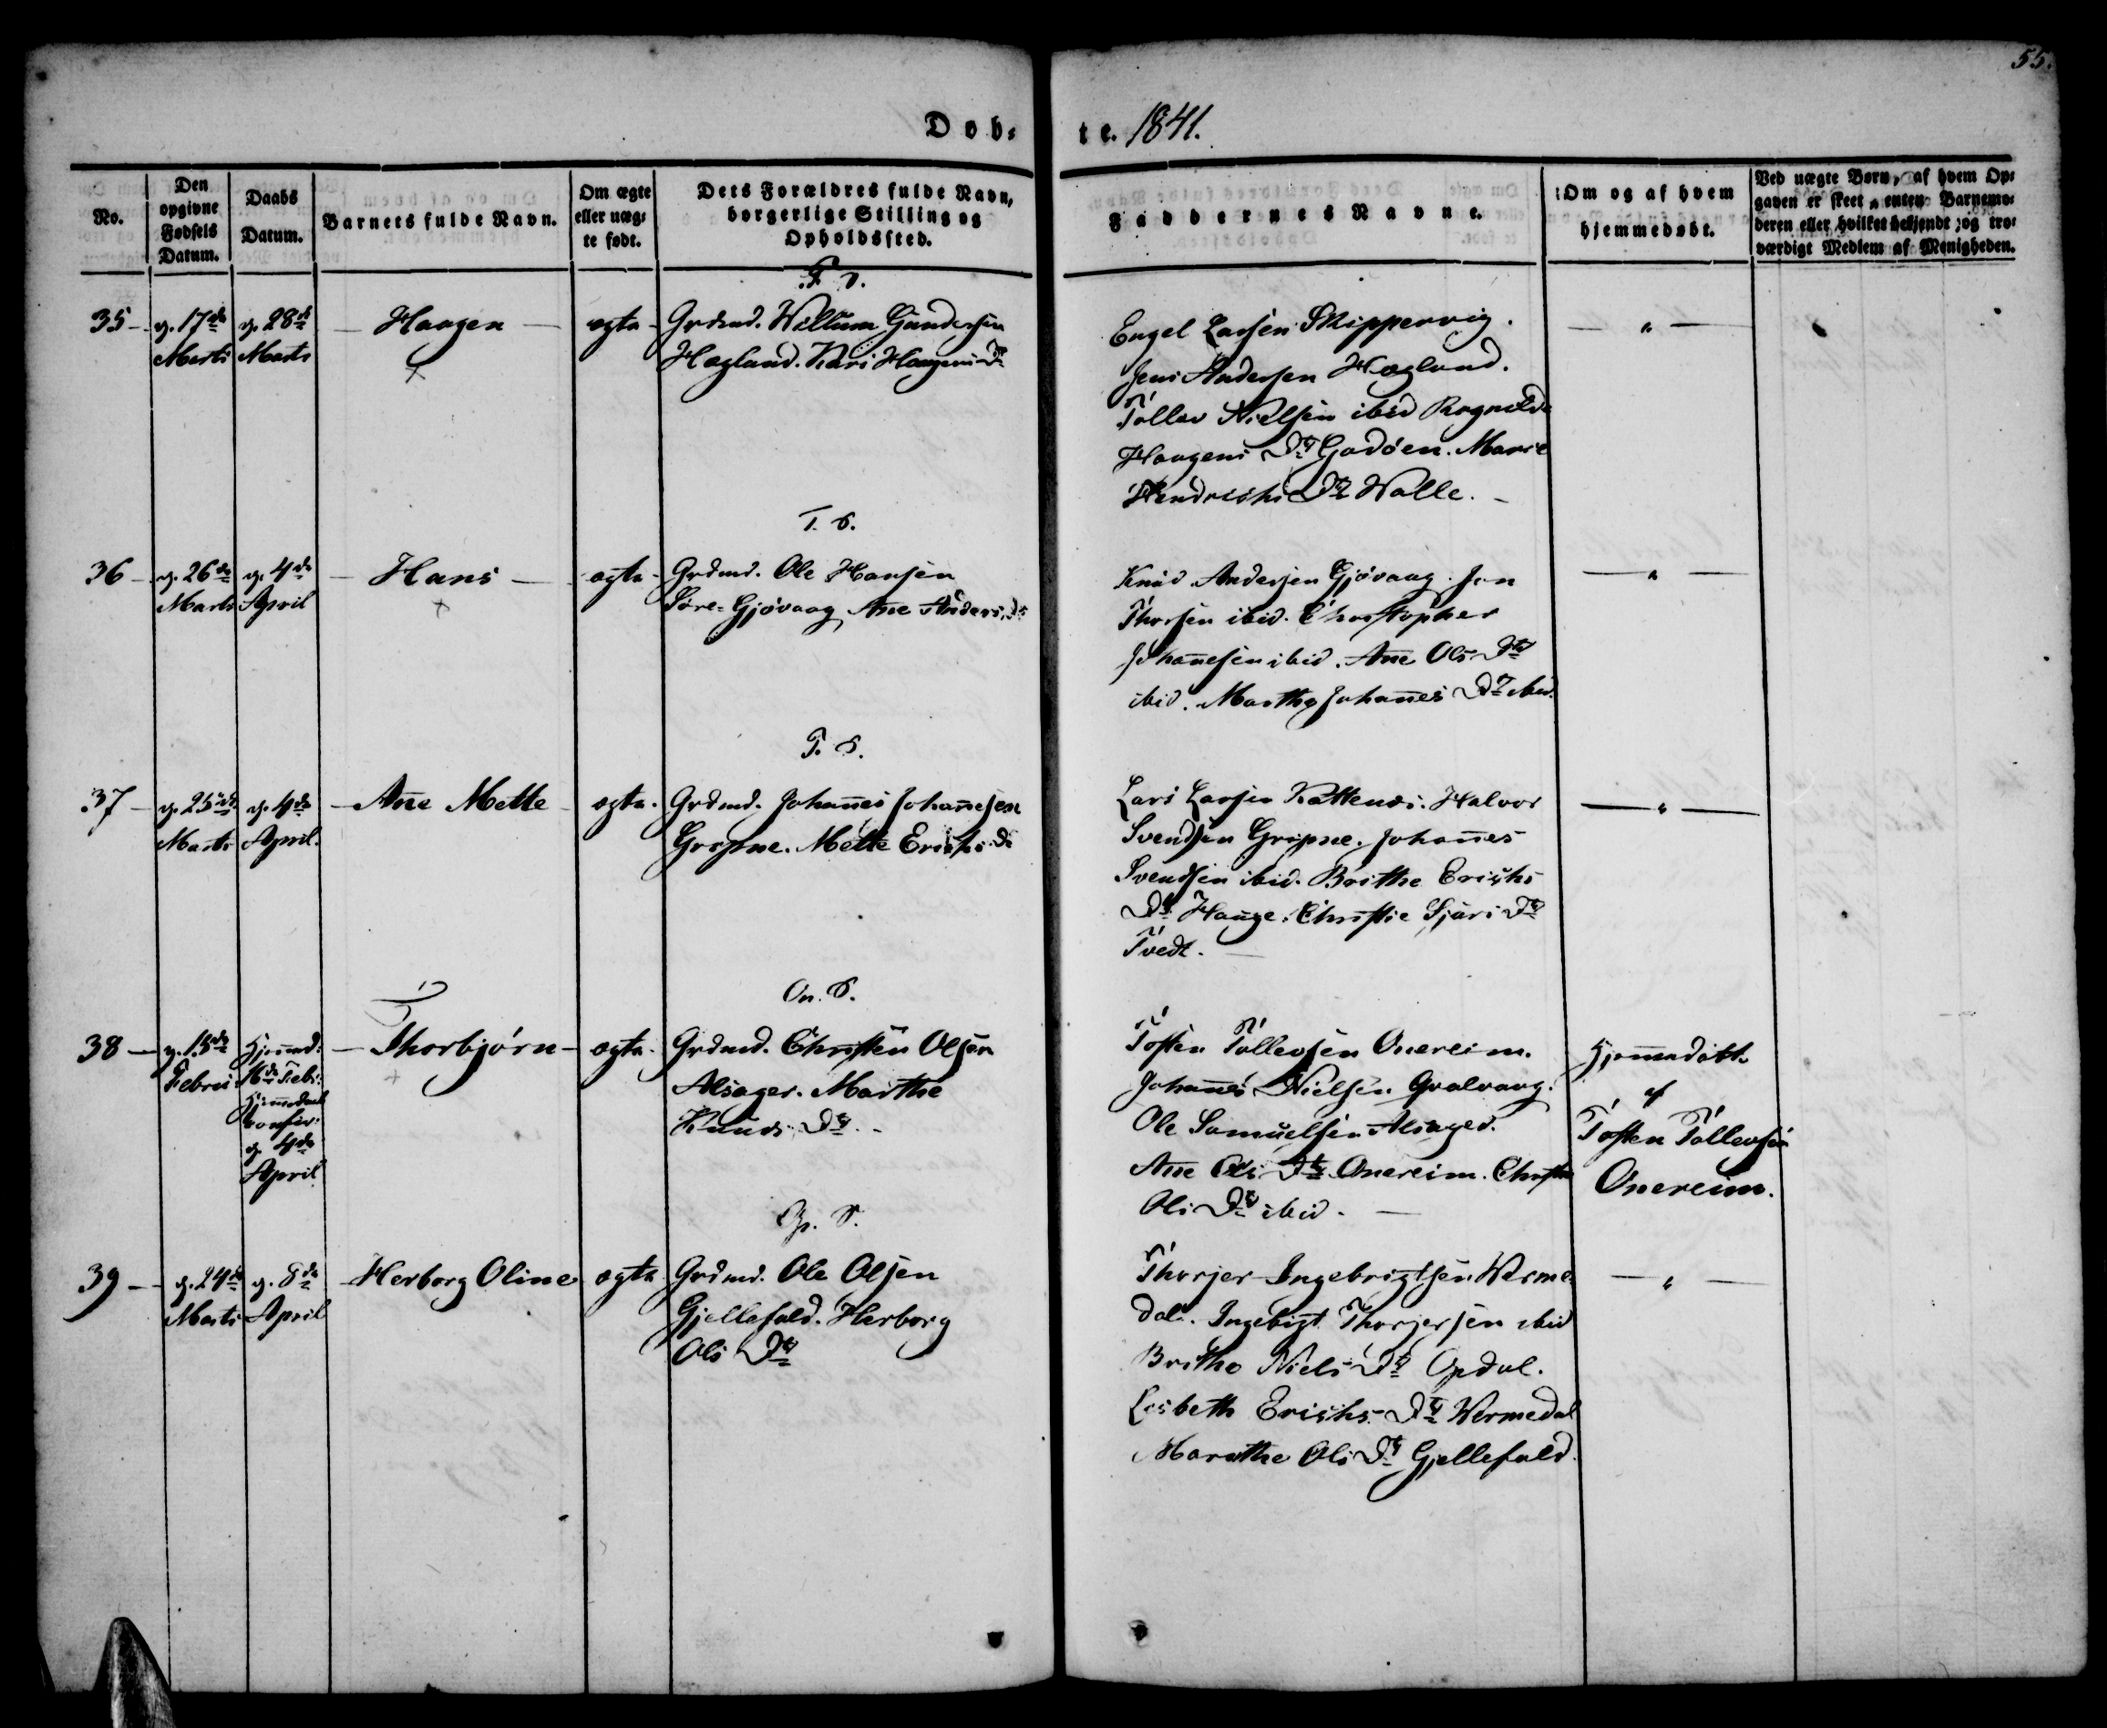 55.
Døb-
te. 1841.
No.
Den opgivne Fødsels Datum.
Daabs Datum.
Barnets fulde Navn.
Om ægte eller uægte født.
Dets Forældres fulde Navn, borgerlige Stilling og Opholdssted.
Faddernes Navne.
Om og af hvem hjemmedøbt.
Ved uægte Børn, af hvem Opgaven er skeet, enten Barnemoderen eller hvilket bekjendt og troværdigt Medlem af Menigheden.
35 – d. 17de Marts
d. 28de Marts
– Haagen –
ægte –
Grdmd. Willum Gundersen
Hagland. Kari Haagens Dr
Engel Larsen Skippervig.
Jens Andersen Hagland.
Tollev Nielsen ibid Ragnilde
Haagens Dtr Godøen. Marie
Hendrichs Dtr Walle. –
– " –
T. S.
36 – d. 26de Marts
d. 4de April
– Hans –
ægte –
Grdmd. Ole Hansen
Søre-Gjøvaag, Ane Anders Dr
Knud Andersen Gjøvaag. Jon
Thorsen ibid. Christopher
Johanesen ibid. Ane Ols Dtr
ibid. Marthe Johanes Dtr ibid.
– " –
T. S.
37 – d. 25de Marts
d. 4de April.
– Ane Mette –
ægte.
Grdmd. Johanes Johanesen
Gripne. Mette Erichs Dr
Lars Larsen Kattenæs. Halvor
Svendsen Gripne. Johanes
Svendsen ibid. Brithe Erichs
Dtr Hauge. Christie Sjurs Dtr
Tvedt. –
– " –
On. S.
38 – d. 15de Febru
Hjemmed. 16de Febr.
Hjemedaab
Confir:
d. 4de
April
– Thorbjørn –
ægte.
Grdmd. Christen Olsen
Alsager. Marthe
Knuds Dtr. –
Tosten Tollevsen Onereim.
Johanes Nielsen Qvalvaag.
Ole Samuelsen Alsager.
Ane Ols Dtr Onereim. Christie
Ols Dtr ibid. –
Hjemmedøbt
af
Tosten Tollevsen
Onereim.
Op. S.
39 – d. 24de Marts
d. 8de April
– Herborg Oline
ægte
Grdmd. Ole Olsen
Gjellefald. Herborg
Ols Dtr
Thorjer Ingebrigtsen Werme-
dal. Ingebrigt Thorjersen ibid
Brithe Niels Dtr Opdal.
Lisbeth Erichs Dtr Wermedal
Marithe Ols Dtr Gjellefald.
– " –